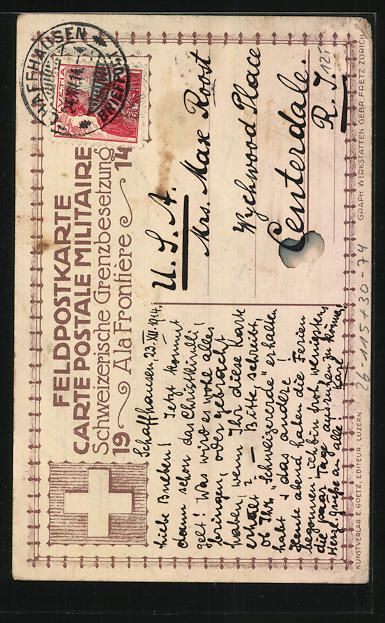 FELDPOSTKARTE
CARTE POSTALE MILITAIRE
Schweizerische Grenzbesetzung
19 A la Frontière 14
SCHAFFHAUSEN
HELVETIA
Schaffhausen 23. XII. 1914.
Liebe Basel! Jetzt kommt
dann schon das Christkindli!
gelt! Was wird es wohl alles
bringen, oder gebracht
haben, wenn Ihr diese Karte
erhält? – Bitte, schreibt,
ob Ihr "Schweizererde" erhalten
habt & das andere
Heute abend haben die Ferien
begonnen, ich bin froh, wenigstens
die paar Tage ausruhen zu können,
Herzl. Grüße an alle
U. S. A.
Mrs. Max Roost
Wychwood Place
Centerdale.
R. I.
26-115+30-74
KUNSTVERLAG E. GOETZ, EDITEUR, LUZERN.
GRAPH. WERKSTÄTTEN GEBR. FRETZ ZÜRICH